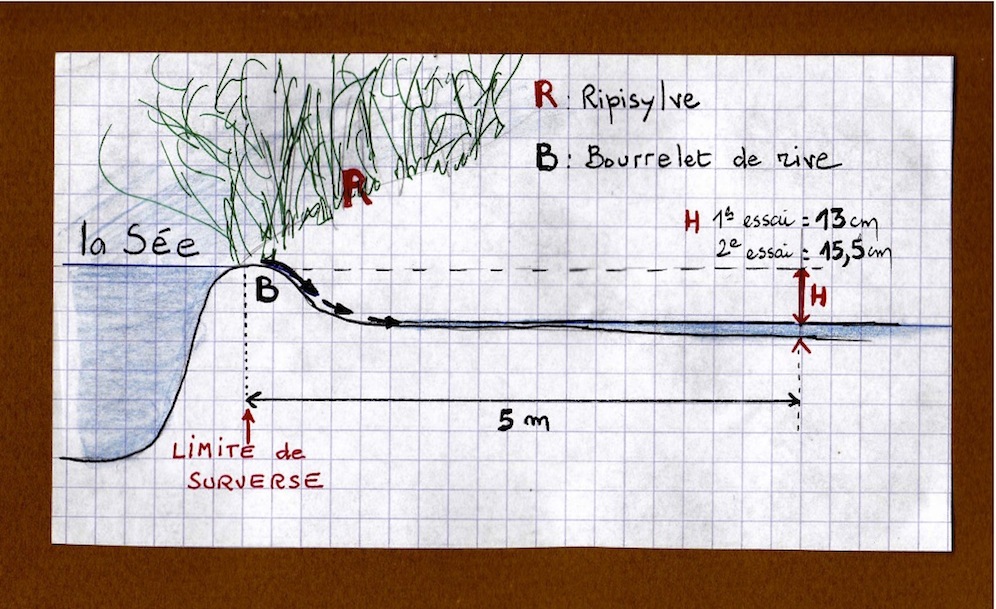 R : Ripisylve
B : Bourrelet de rive
R
la Sée
H 1er essai = 13 cm
2e essai = 15,5 cm
B
H
5 m
LIMITE de
SURVERSE